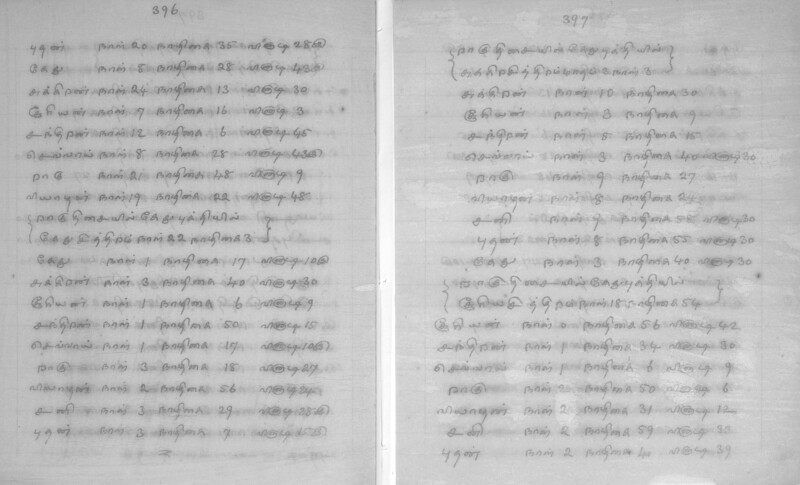 396
புதன் நாள் 20 நாழிகை 35 விகடி 28
கேது நாள் 8 நாழிகை 28 விகடி 43
சுக்கிரன் நாள் 24 நாழிகை 13 விகடி 30
சூரியன் நாள் 7 நாழிகை 16 விகடி 3
சந்திரன் நாள் 12 நாழிகை 6 விகடி 45
செவ்வாய் நாள் 8 நாழிகை 28 விகடி 43
ராகு நாள் 21 நாழிகை 48 விகடி 9
வியாழன் நாள் 19 நாழிகை 22 விகடி 48
ராகுதிசையில் கேதுபுத்தியில்
கேது நாள் 22 நாழிகை 3
கேது நாள் 1 நாழிகை 17 விகடி 10
சுக்கிரன் நாள் 3 நாழிகை 40 விகடி 30
சூரியன் நாள் 1 நாழிகை 6 விகடி 9
சந்திரன் நாள் 1 நாழிகை 50 விகடி 15
செவ்வாய் நாள் 1 நாழிகை 17 விகடி 10
ராகு நாள் 3 நாழிகை 18 விகடி 27
வியாழன் நாள் 2 நாழிகை 56 விகடி 24
சனி நாள் 3 நாழிகை 29 விகடி 28
புதன் நாள் 3 நாழிகை 7 விகடி
397
ராகுதிசையில் கேதுபுத்தியில்
3
சுக்கிரன் நாள் 10 நாழிகை 30
சூரியன் நாள் 3 நாழிகை 9
சந்திரன் நாள் 5 நாழிகை 15
செவ்வாய் நாள் 3 நாழிகை 40 விகடி 30
ராகு நாள் 9 நாழிகை 27
வியாழன் நாள் 8 நாழிகை 24
சனி நாள் 9 நாழிகை 58 விகடி 30
புதன் நாள் 8 நாழிகை 55 விகடி 30
கேது நாள் 3 நாழிகை 40 விகடி 30
ராகுதிசையில் கேதுபுத்தியில்
நாள் 18 நாழிகை 54
சூரியன் நாள் 0 நாழிகை 56 விகடி 42
சந்திரன் நாள் 1 நாழிகை 34 விகடி 30
செவ்வாய் நாள் 1 நாழிகை 6 விகடி 9
ராகு நாள் 2 நாழிகை 50 விகடி 6
வியாழன் நாள் 2 நாழிகை 31 விகடி 12
சனி நாள் 2 நாழிகை 59 விகடி 33
புதன் நாள் 2 நாழிகை 40 விகடி 39